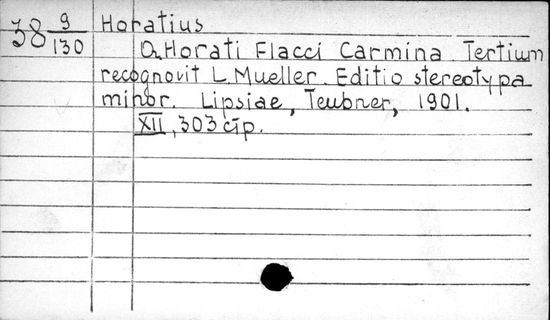 38 9/130 Horatius
Q. Horati Flacci Carmina Tertium
recognovit L. Mueller. Editio stereotypa
minor. Lipsiae, Teubner, 1901.
XII, 303 стр.